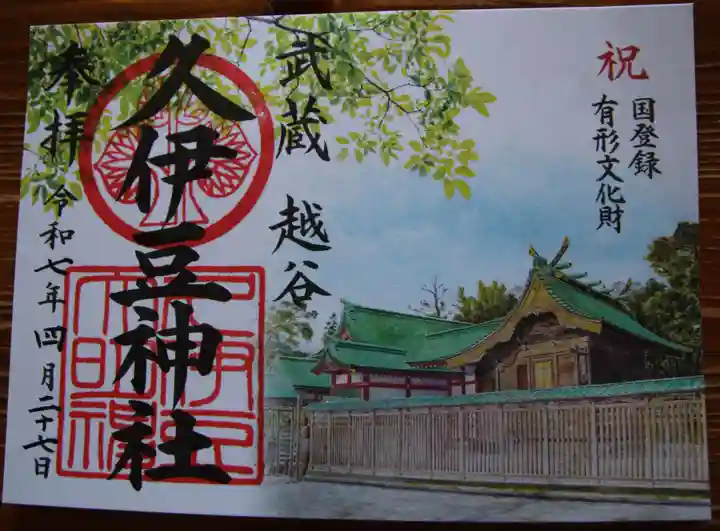 祝
国登録
有形文化財
武蔵 越谷
久伊豆神社
奉拝 令和七年四月二十七日